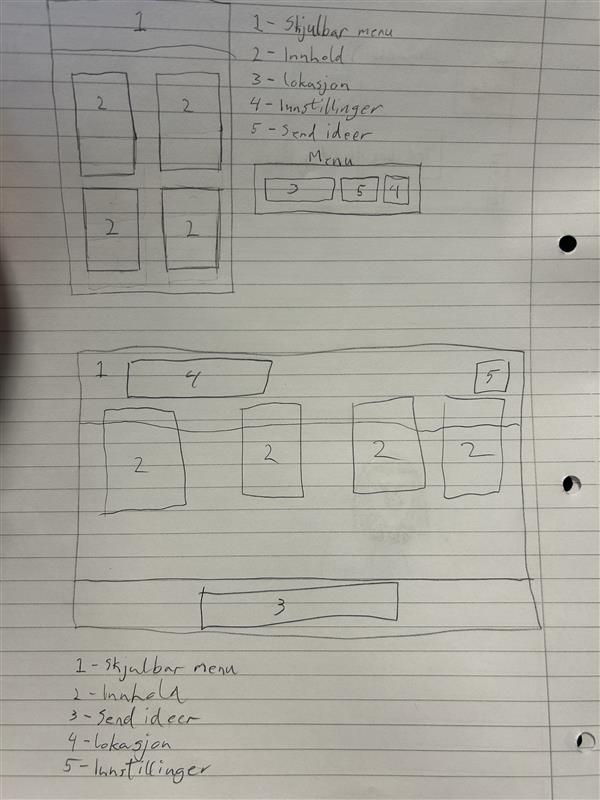 1
1 - Skjulbar menu
2 - Innhold
3 - Lokasjon
4 - Innstillinger
5 - Send ideer
Menu
3 5 4
2 2
2 2
1 4 5
2 2 2 2
3
1 - Skjulbar menu
2 - Innhold
3 - Send ideer
4 - Lokasjon
5 - Innstillinger